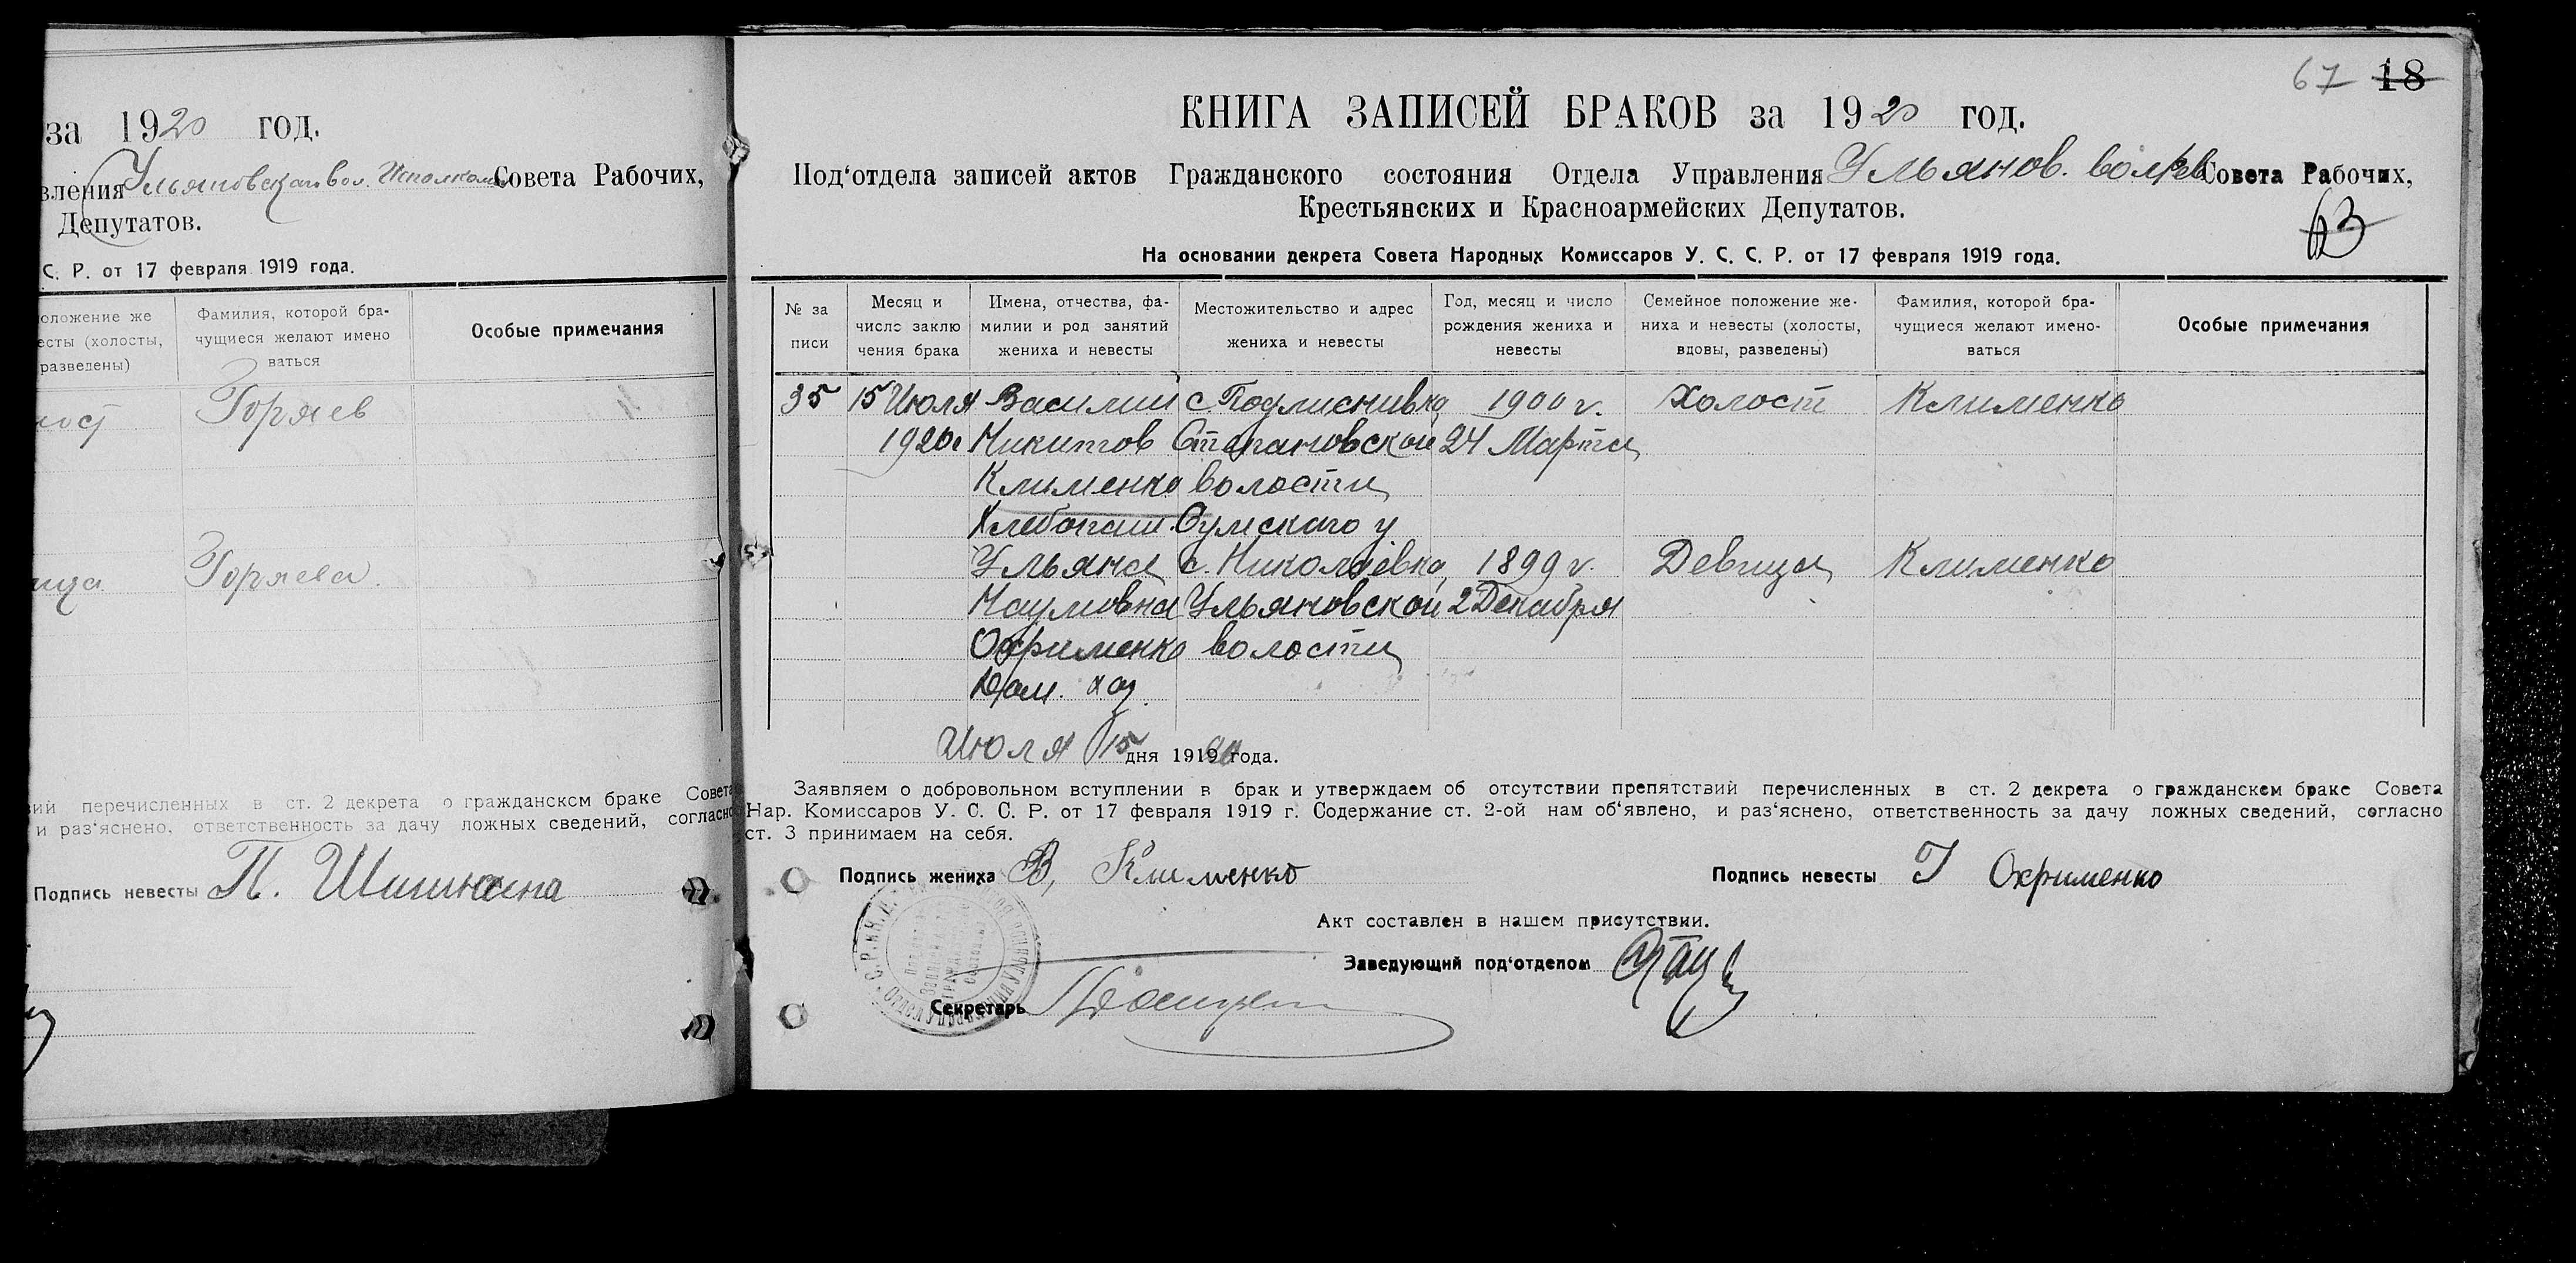 за 1920 год.
вления Ульяновскаго вол. Исполкома Совета Рабочих,
Депутатов.
С. Р. от 17 февраля 1919 года.
оложение же
есты (холосты,
разведены)
Фамилия, которой бра-
чущиеся желают имено
ваться
Особые примечания
Горяев
ица
Горяева.
ий перечисленных в ст. 2 декрета о гражданском браке Совета
и раз‘яснено, ответственность за дачу ложных сведений, согласно
Подпись невесты П. Шишкина
67 18
КНИГА ЗАПИСЕЙ БРАКОВ за 1920 год.
Под‘отдела записей актов Гражданского состояния Отдела Управления Ульянов. волрев Совета Рабочих,
Крестьянских и Красноармейских Депутатов.
63
На основании декрета Совета Народных Комиссаров У. С. С. Р. от 17 февраля 1919 года.
№ за
писи
Месяц и
число заклю
чения брака
Имена, отчества, фа-
милии и род занятий
жениха и невесты
Местожительство и адрес
жениха и невесты
Год, месяц и число
рождения жениха и
невесты
Семейное положение же-
ниха и невесты (холосты,
вдовы, разведены)
Фамилия, которой бра-
чущиеся желают имено-
ваться
Особые примечания
35 15 Июля Василий с. Подлеснивка 1900 г. Холост Клименко
1920г Никитов Степановской 24 Марта
Клименко волости
Хлебопаш. Сумскаго у
Ульяна с. Николаевка 1899 г. Девица Клименко
Наумовна Ульяновской 2 Декабря
Охрименко волости
Дом. хоз.
Июля 15 дня 1920 года.
Заявляем о добровольном вступлении в брак и утверждаем об отсутствии препятствий перечисленных в ст. 2 декрета о гражданском браке Совета
Нар. Комиссаров У. С. С. Р. от 17 февраля 1919 г. Содержание ст. 2-ой нам об‘явлено, и раз‘яснено, ответственность за дачу ложных сведений, согласно
ст. 3 принимаем на себя.
Подпись жениха В, Клименко
Подпись невесты У Охрименко
Акт составлен в нашем присутствии.
Заведующий под‘отделом
Секретарь